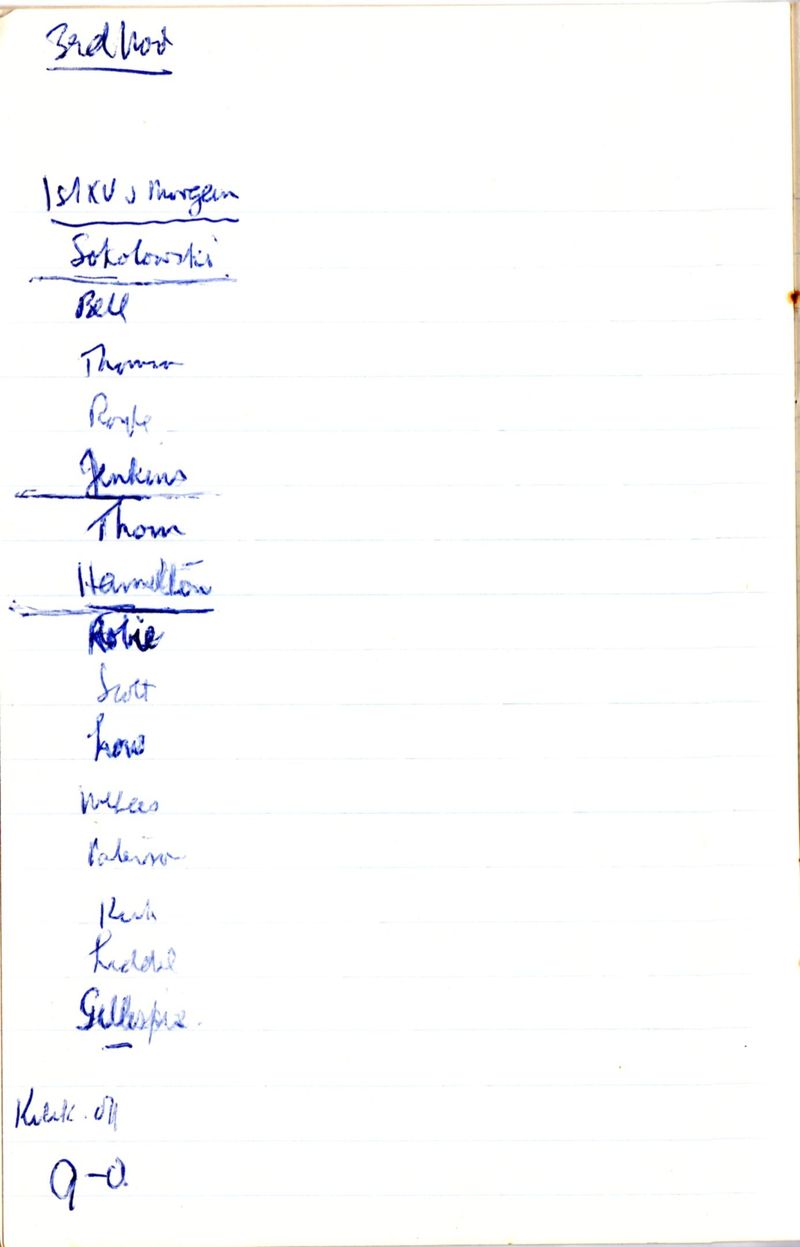 3rd Nov
1st XV v Morgan
Sokolowski
Bell
Thomson
Jenkins
Thom
Hamilton
Robie
Scott
Low
Paterson
Liddel
Gillespie.
Kick-off
9-0.